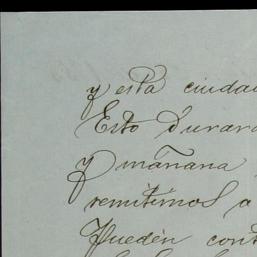 y esta ciudad
Esto durara
y mañana
remitirnos a
Pueden cont